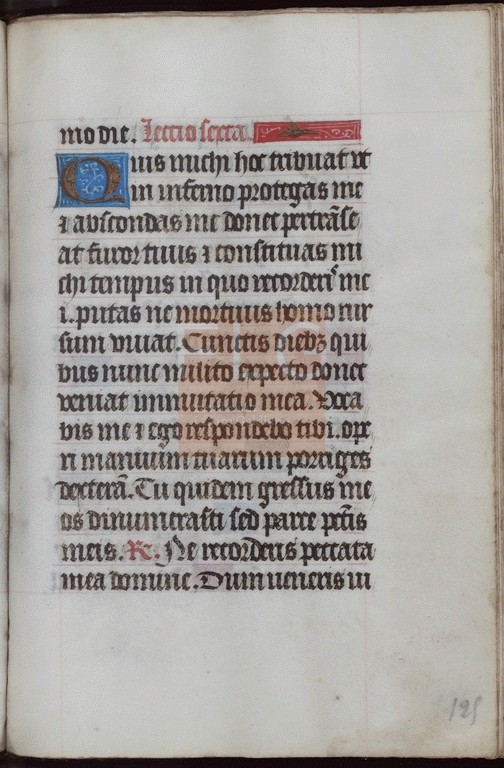 mo die. Lectio sexta.
Quis michi hoc tribuat vt
in inferno protegas me
⁊ abscondas me donec pertrāse
at furor tuus ⁊ constituas mi
chi tempus in quo recorderis me
i. putas ne mortuus homo rur
sum viuat. Cunctis diebꝫ qui
bus nunc milito expecto donec
veniat immutatio mea. Voca
bis me ⁊ ego respondebo tibi. ope
ri manuum tuarum porriges
dexterā. Tu quidem gressus me
os dinumerasti sed parce pctīs
meis. Rc. Ne recorderis peccata
mea domine. Dum veneris iu
125